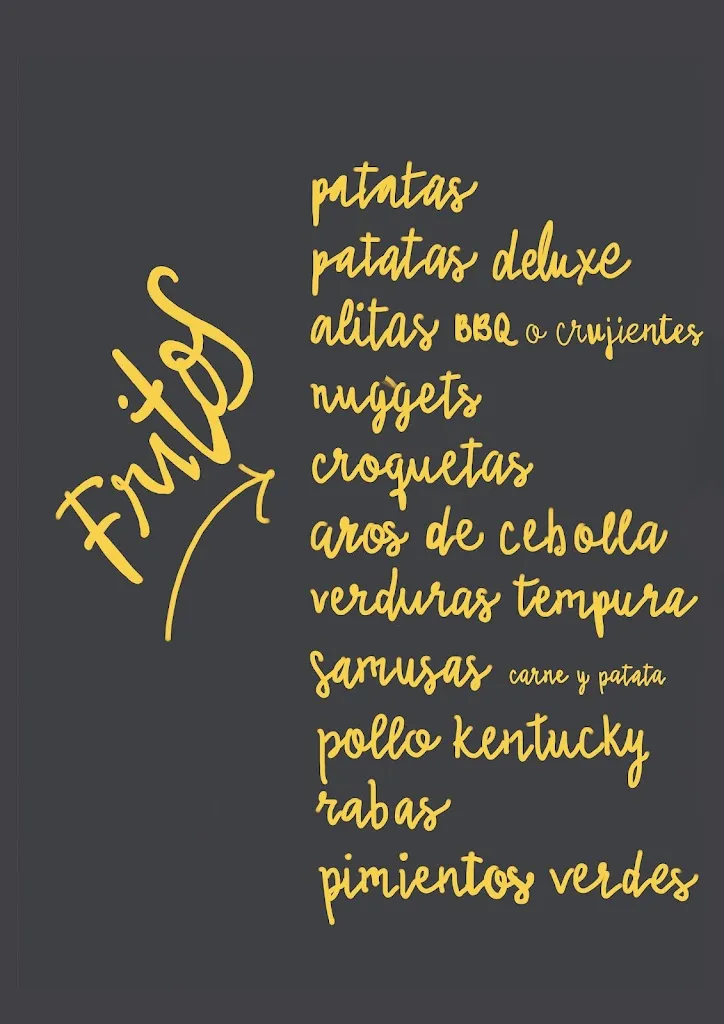 Fritos
patatas
patatas deluxe
alitas BBQ o crujientes
nuggets
croquetas
aros de cebolla
verduras tempura
samusas carne y patata
pollo kentucky
rabas
pimientos verdes